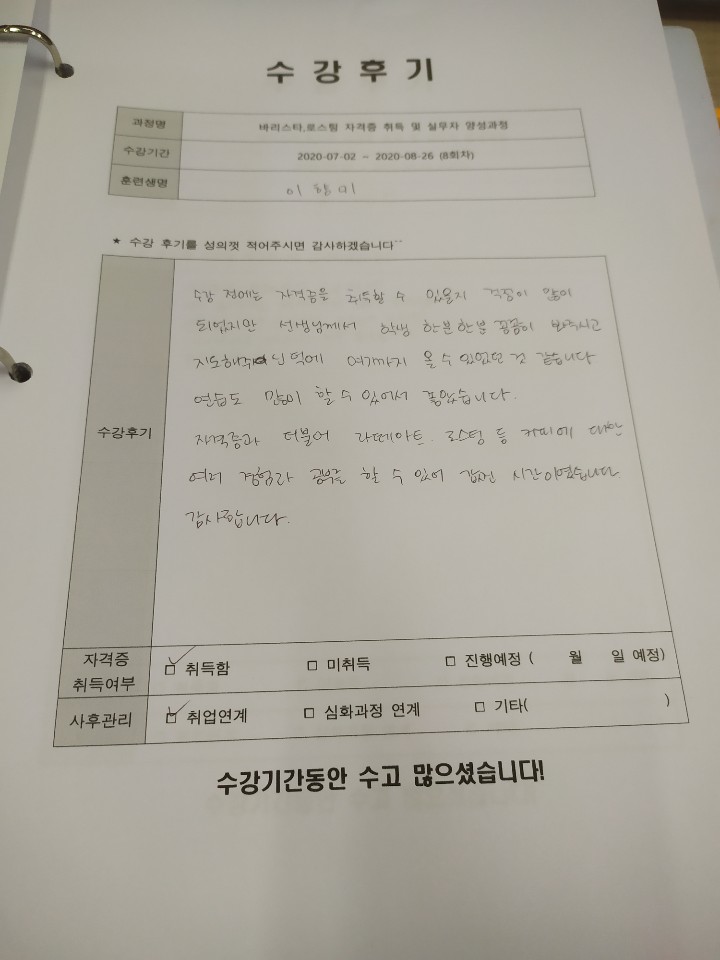 수강후기
과정명 바리스타,로스팅 자격증 취득 및 실무자 양성과정
수강기간 2020-07-02 ~ 2020-08-26 (8회차)
훈련생명 이향미
★ 수강 후기를 성의껏 적어주시면 감사하겠습니다^^
수강후기
수강 전에는 자격증을 취득할 수 있을지 걱정이 많이
되었지만 선생님께서 학생 한분한분 꼼꼼이 봐주시고
지도해주신 덕에 여기까지 올 수 있었던 것 같습니다
연습도 많이 할 수 있어서 좋았습니다.
자격증과 더불어 라떼아트. 로스팅 등 커피에 대한
여러 경험과 공부를 할 수 있어 값진 시간이였습니다
감사합니다.
자격증
취득여부 ☑ 취득함 □ 미취득 □ 진행예정 ( 월 일 예정)
사후관리 ☑ 취업연계 □ 심화과정 연계 □ 기타( )
수강기간동안 수고 많으셨습니다!